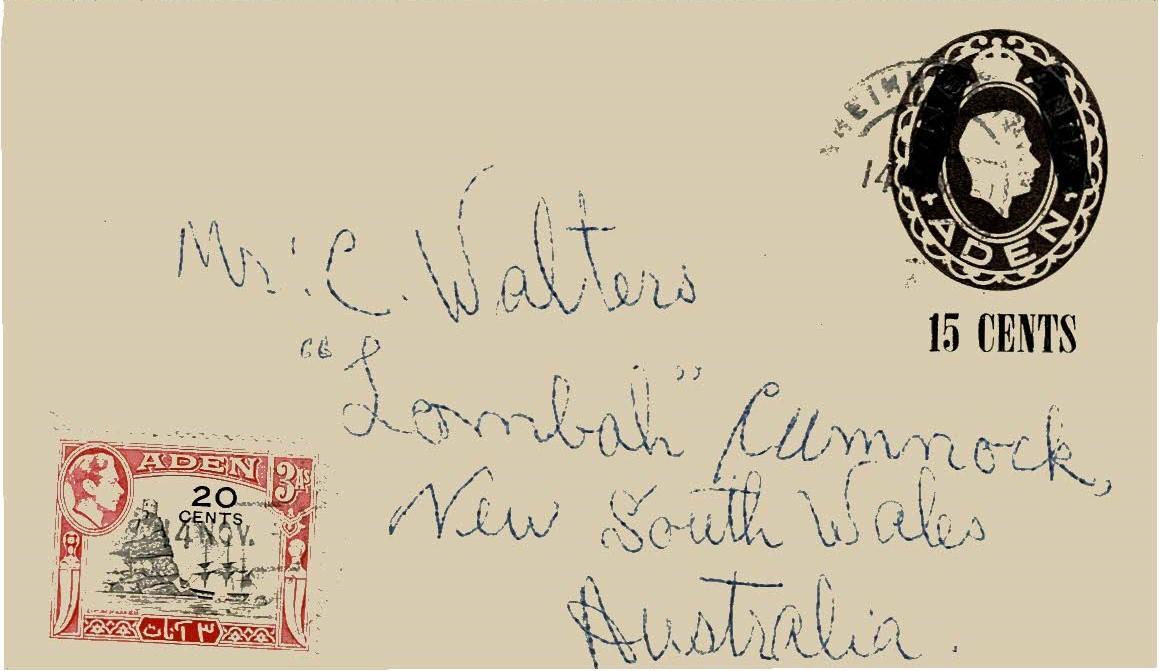 ADEN
15 CENTS
14
Mr. C. Walters
"Lombah" Cumnock,
New South Wales
Australia.
ADEN 3As
20
CENTS
14 NOV.
٣ آنات